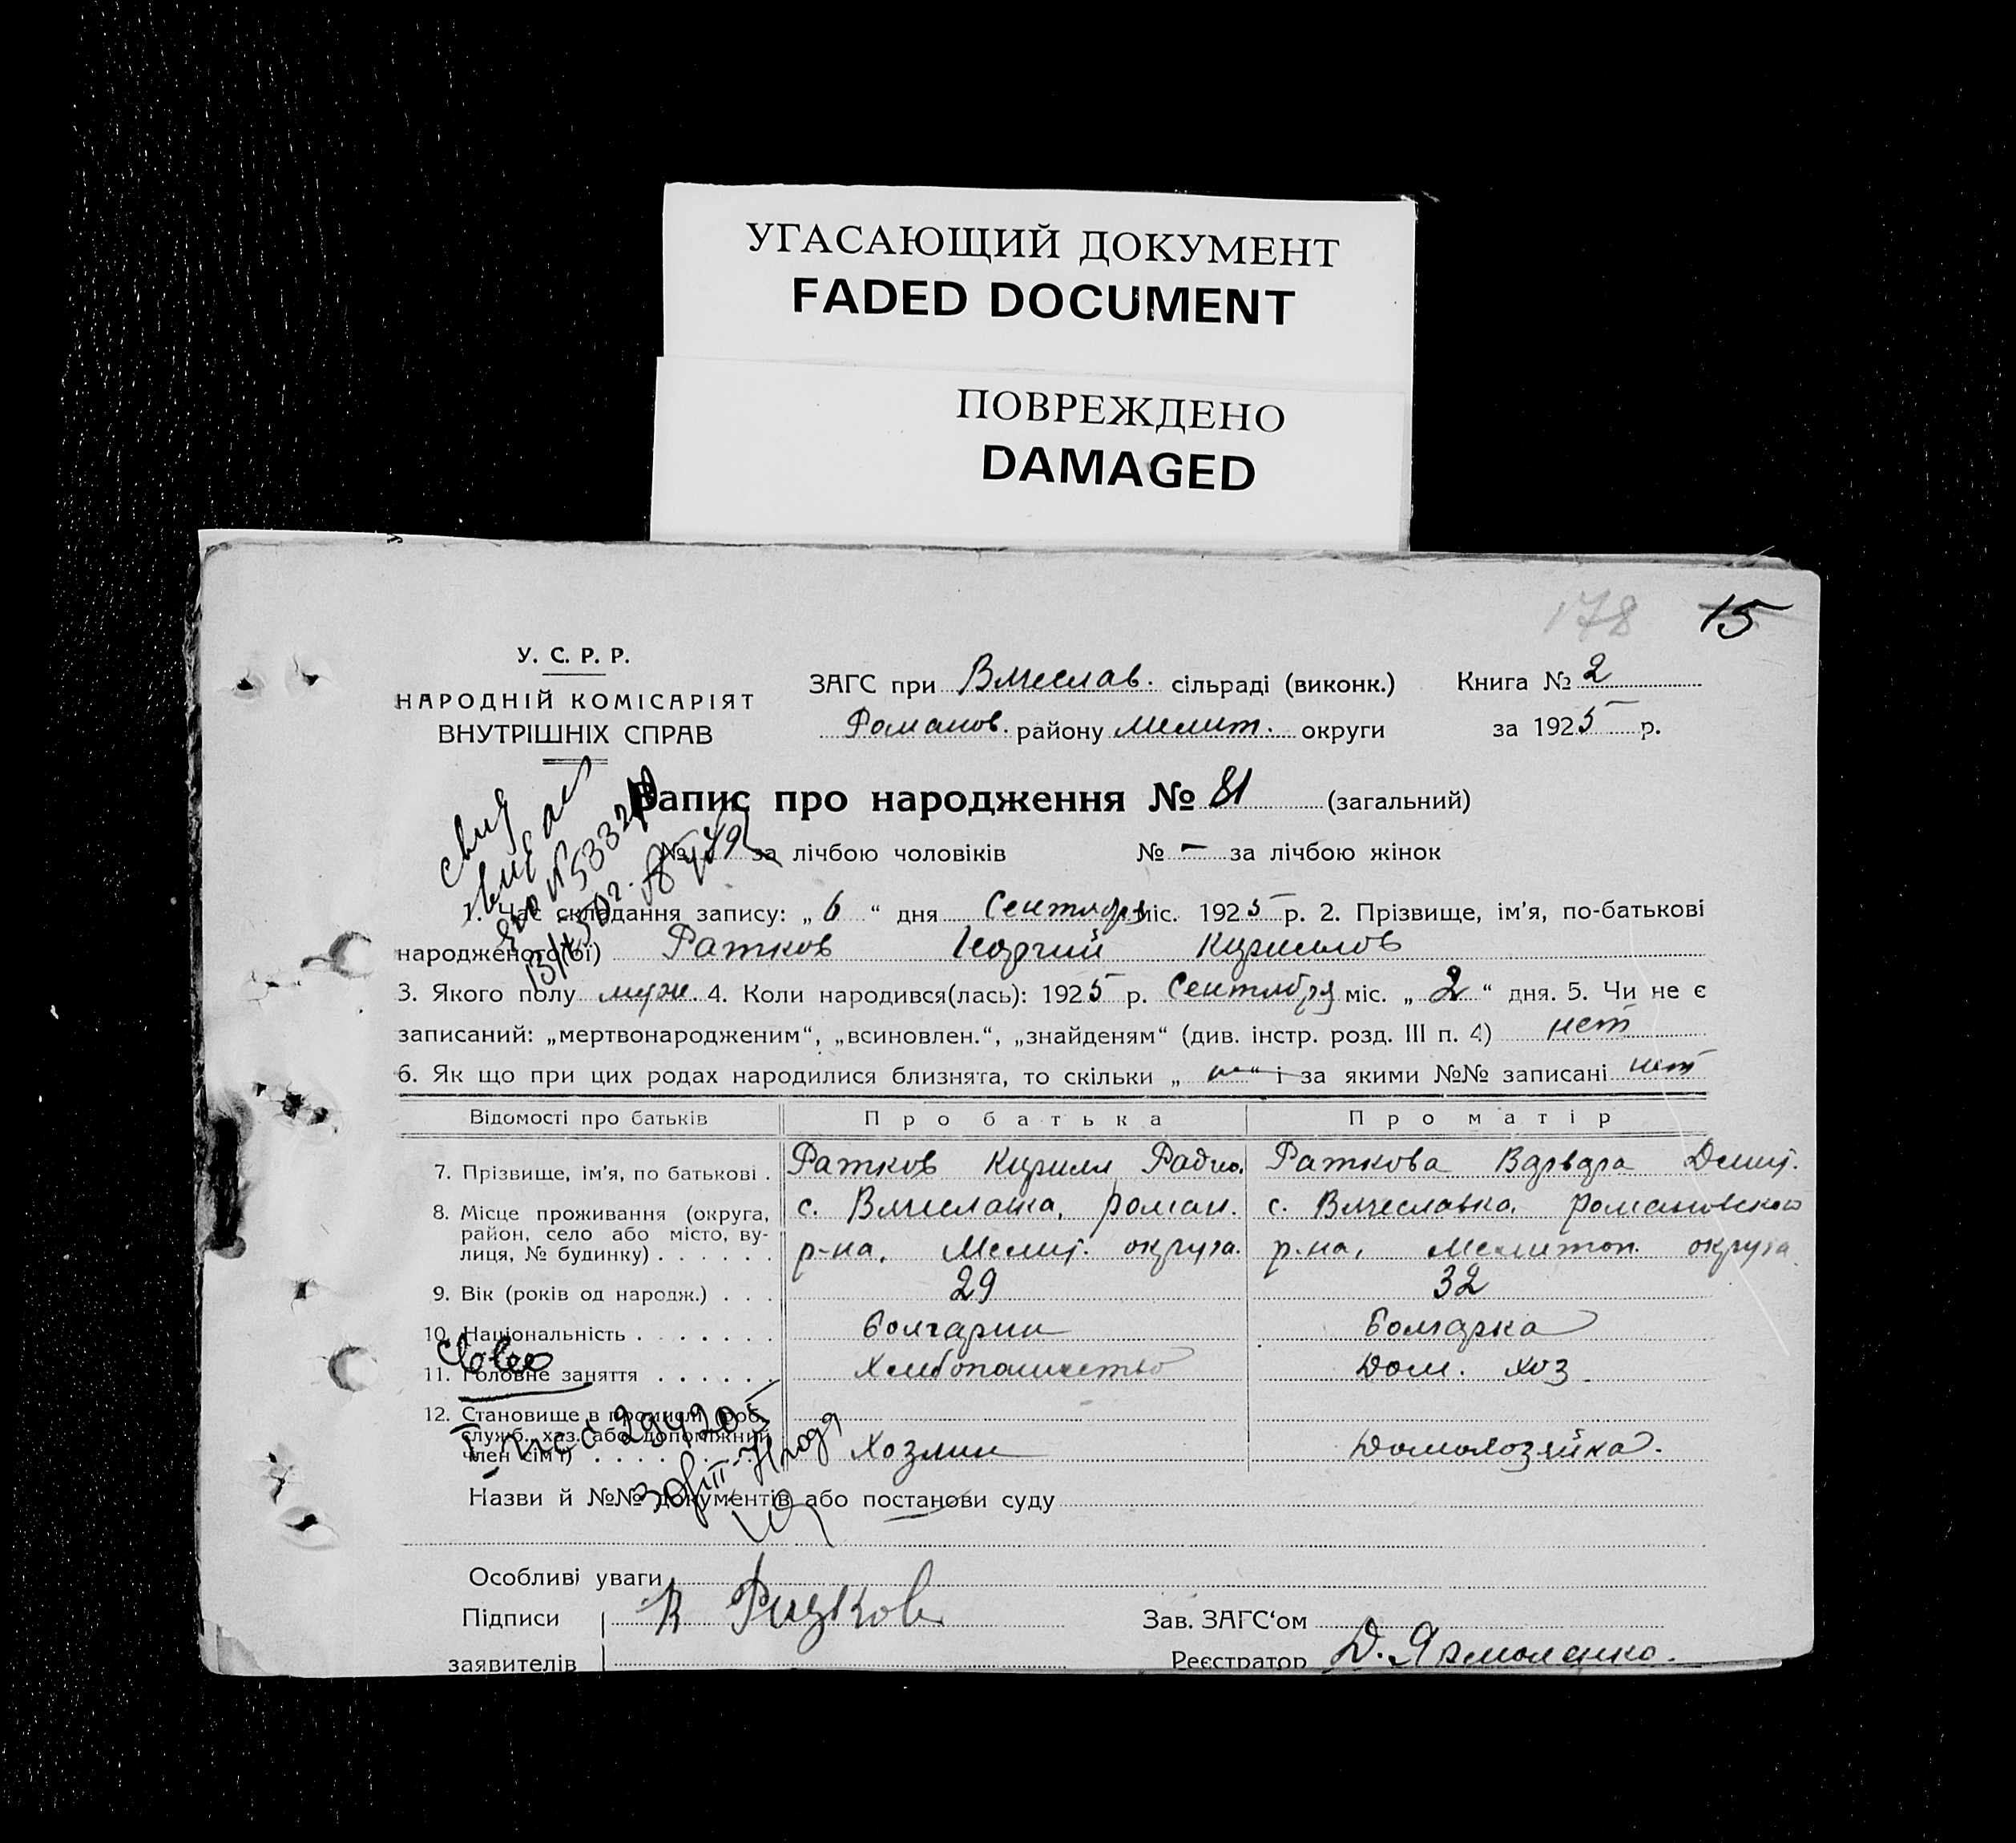 УГАСАЮЩИЙ ДОКУМЕНТ
FADED DOCUMENT
ПОВРЕЖДЕНО
DAMAGED
178 15
У. С. Р. Р.
НАРОДНІЙ КОМІСАРІЯТ
ВНУТРІШНІХ СПРАВ
ЗАГС при Вячеслав. сільраді (виконк.) Книга № 2
Романов. району Мелит. округи за 1925 р.
Запис про народження № 81 (загальний)
№ 49 за лічбою чоловіків № – за лічбою жінок
1. Час складання запису: „ 6 “ дня Сентября міс. 1925 р. 2. Прізвище, ім'я, по-батькові
народженого(ої) Ратков Георгий Кириллов
3. Якого полу муж. 4. Коли народився(лась): 1925 р. Сентября міс. „ 2 “ дня. 5. Чи не є
записаний: „мертвонародженим“, „всиновлен.“, „знайденям“ (див. інстр. розд. III п. 4) нет
6. Як що при цих родах народилися близнята, то скільки „ “ і за якими №№ записані нет
Відомості про батьків Про батька Про матір
7. Прізвище, ім'я, по батькові . Ратков Кирилл Радио. Раткова Варвара Дмит.
8. Місце проживання (округа, с. Вячеславка, роман. с. Вячеславка, Романовского
район, село або місто, ву-
лиця, № будинку) . . . . . . р-на, Мелит. округа. р-на, Мелитоп. округа
9. Вік (років од народж.) . . . 29 32
10. Національність . . . . . . . болгарин болгарка
11. Головне заняття . . . . . . Хлебопашество Дом. хоз.
12. Становище в промислі (роб.,
служб., хаз. або допоміжний
член сім'ї) . . . . . . . . . Хозяин Домохозяйка.
Назви й №№ документів або постанови суду
Особливі уваги
Підписи К Ратков Зав. ЗАГС‘ом
заявителів Реєстратор Д. Ярмоленко.